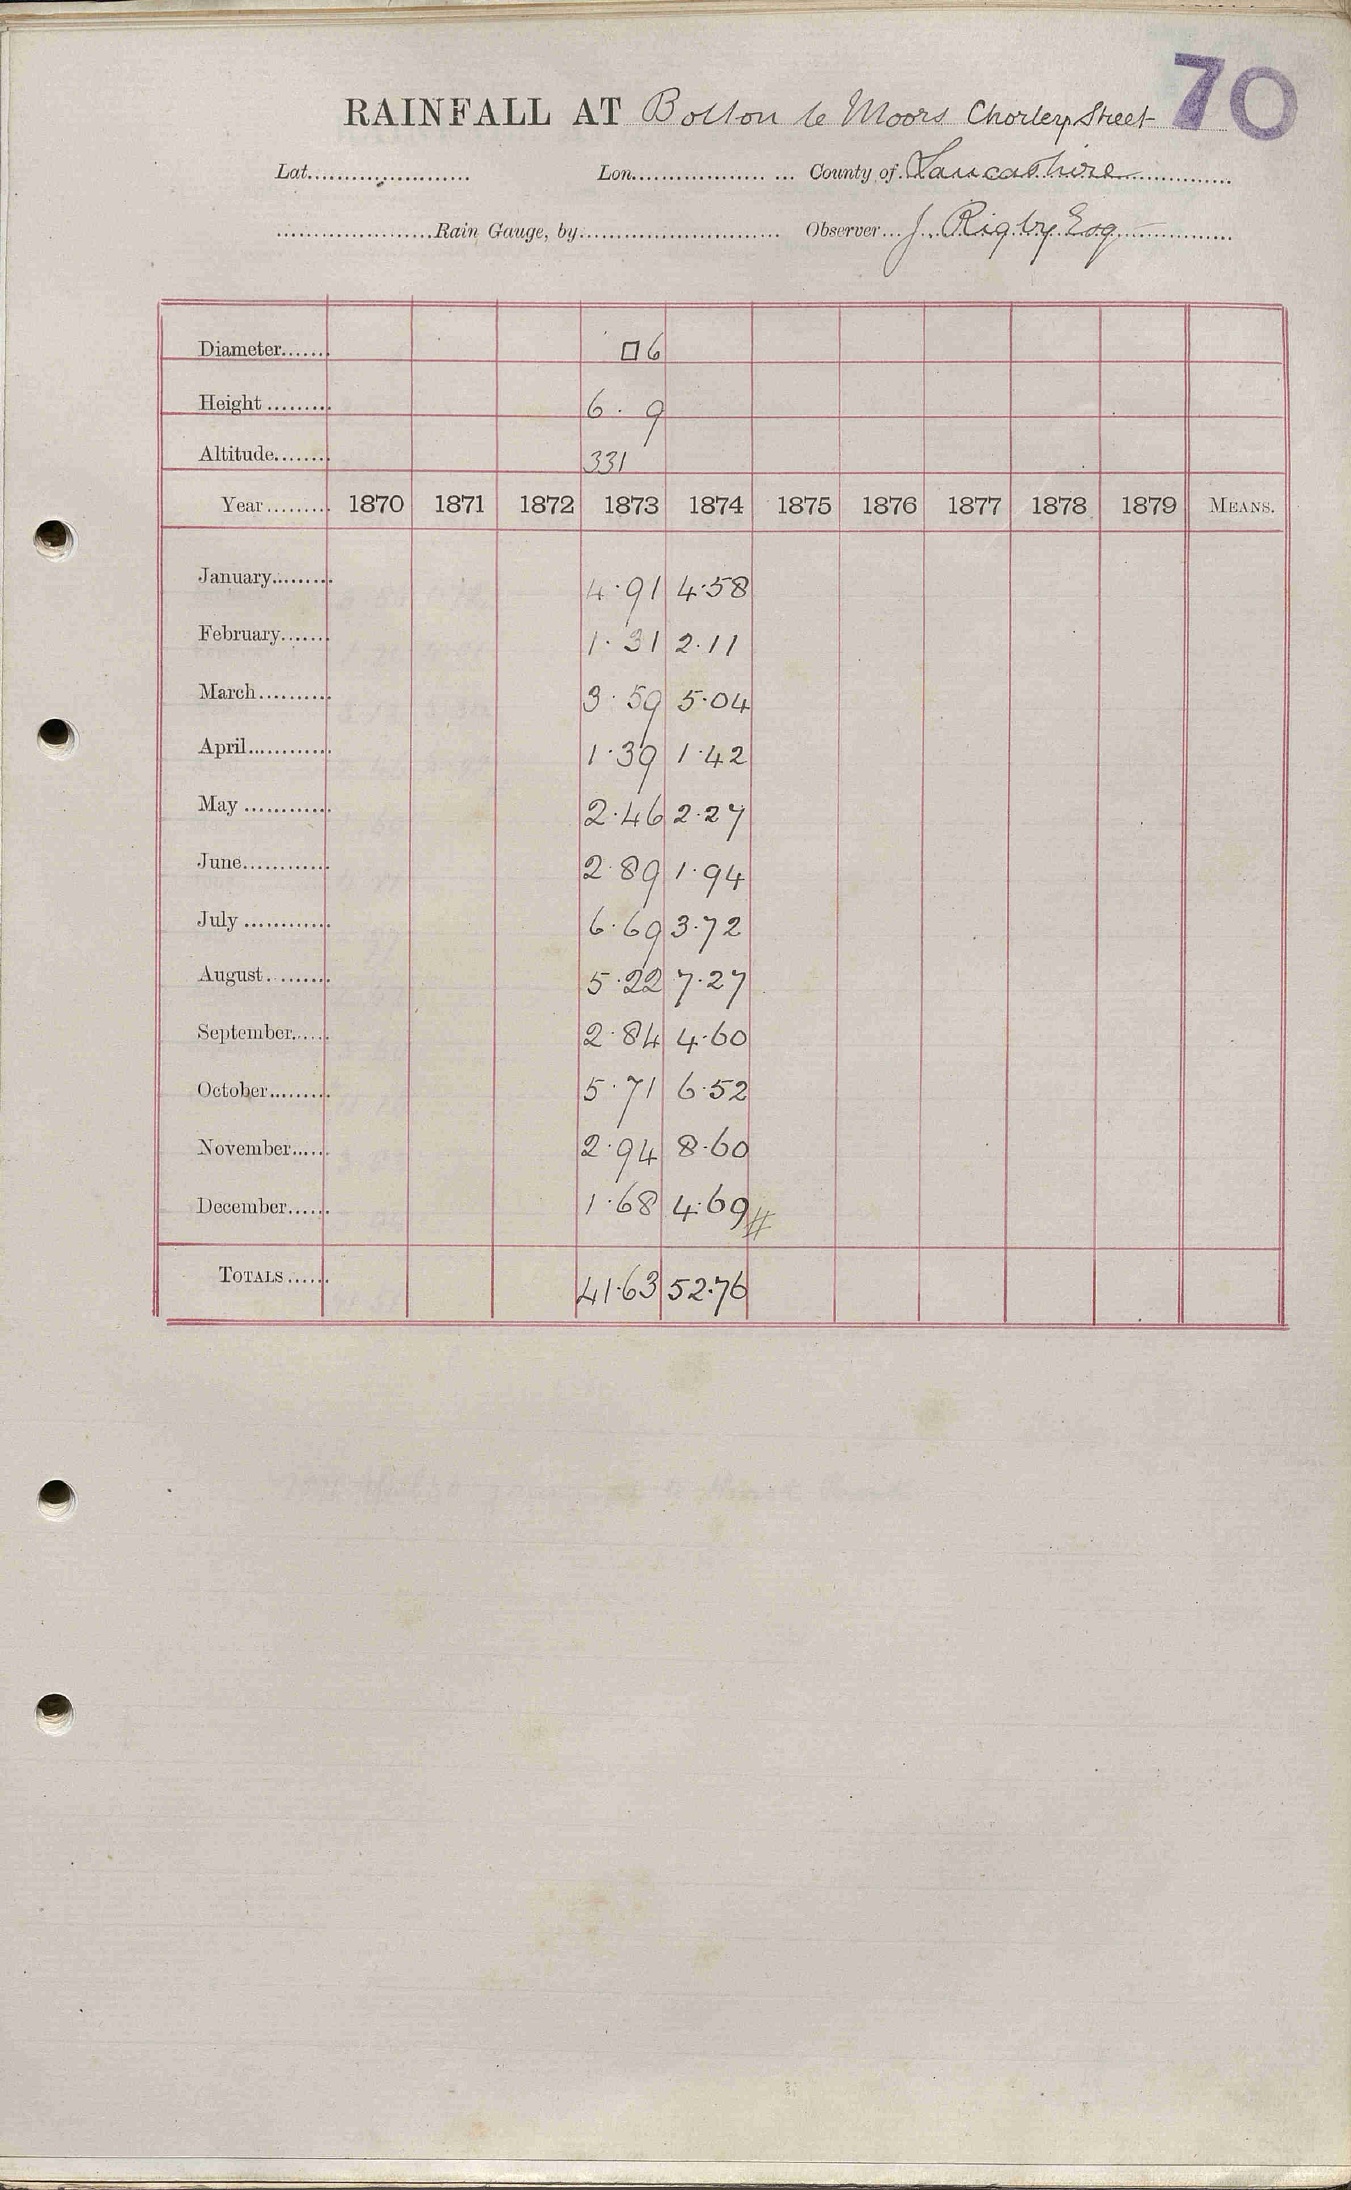 70
RAINFALL AT Bolton le Moors Chorley Street
Lat...................... Lon.................. ... County of Lancashire
......................Rain Gauge, by............................ Observer... J. Rigby Esq
Diameter....... □ 6
Height ......... 6 . 9
Altitude........ 331
Year......... 1870 1871 1872 1873 1874 1875 1876 1877 1878 1879 MEANS.
January......... 4.91 4.58
February....... 1.31 2.11
March.......... 3.59 5.04
April............ 1.39 1.42
May ............ 2.46 2.27
June............ 2.89 1.94
July ............ 6.69 3.72
August......... 5.22 7.27
September...... 2.84 4.60
October......... 5.71 6.52
November...... 2.94 8.60
December...... 1.68 4.69 #
TOTALS ...... 41.63 52.76